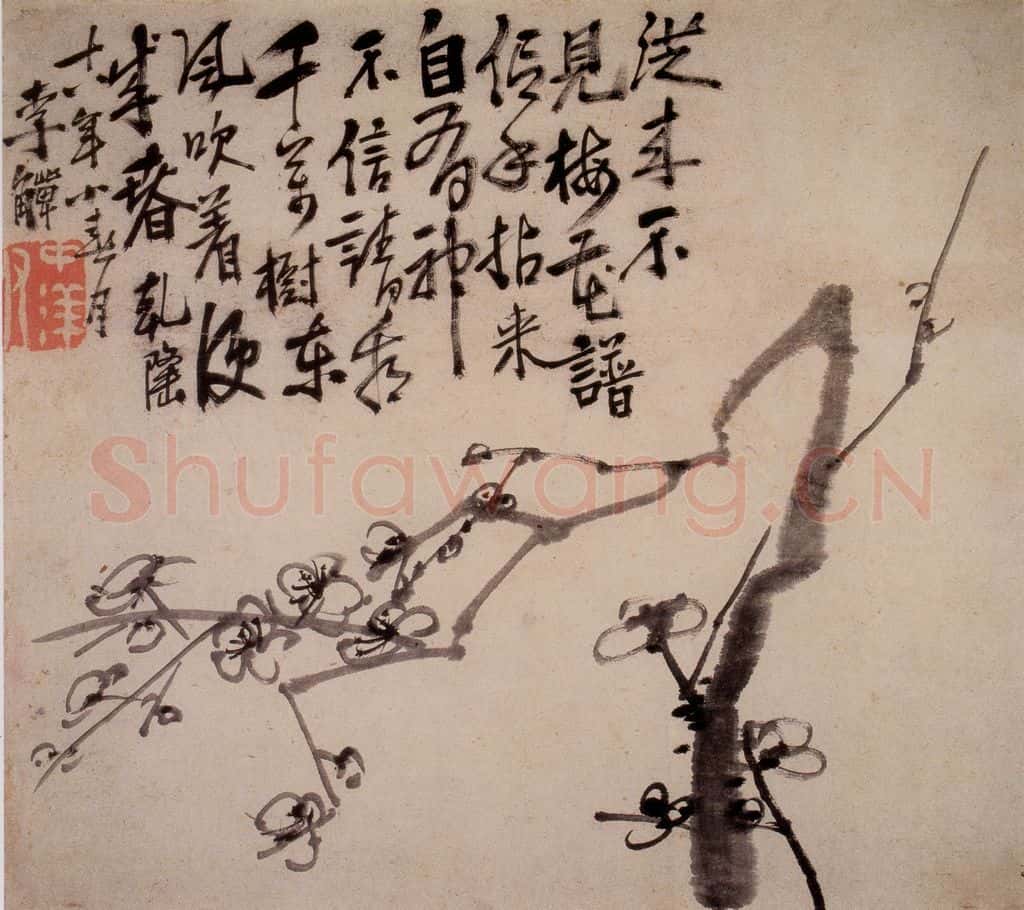 從来不
見梅花譜
信手拈来
自有神
不信請看
千萬樹東
風吹着便
成春乾隆
十八年小春月
李鱓
中洋
Shufawang.CN